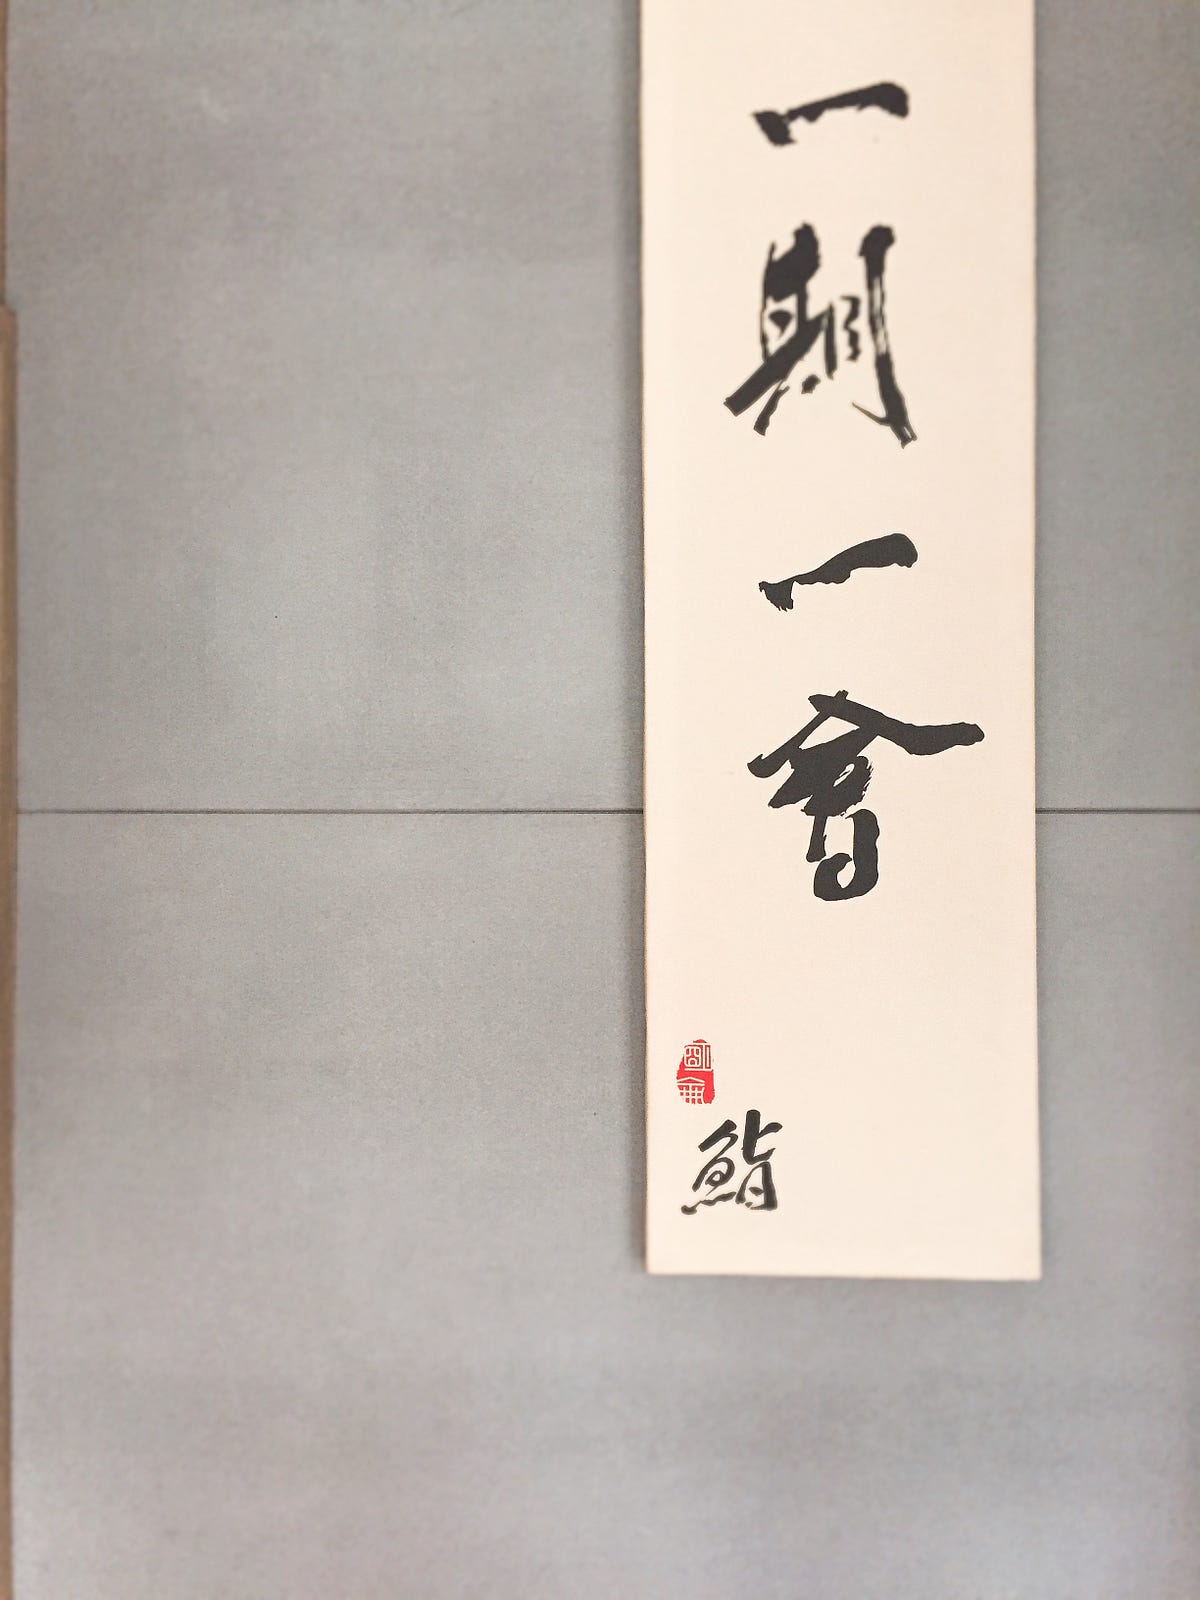 一期一會
鮨